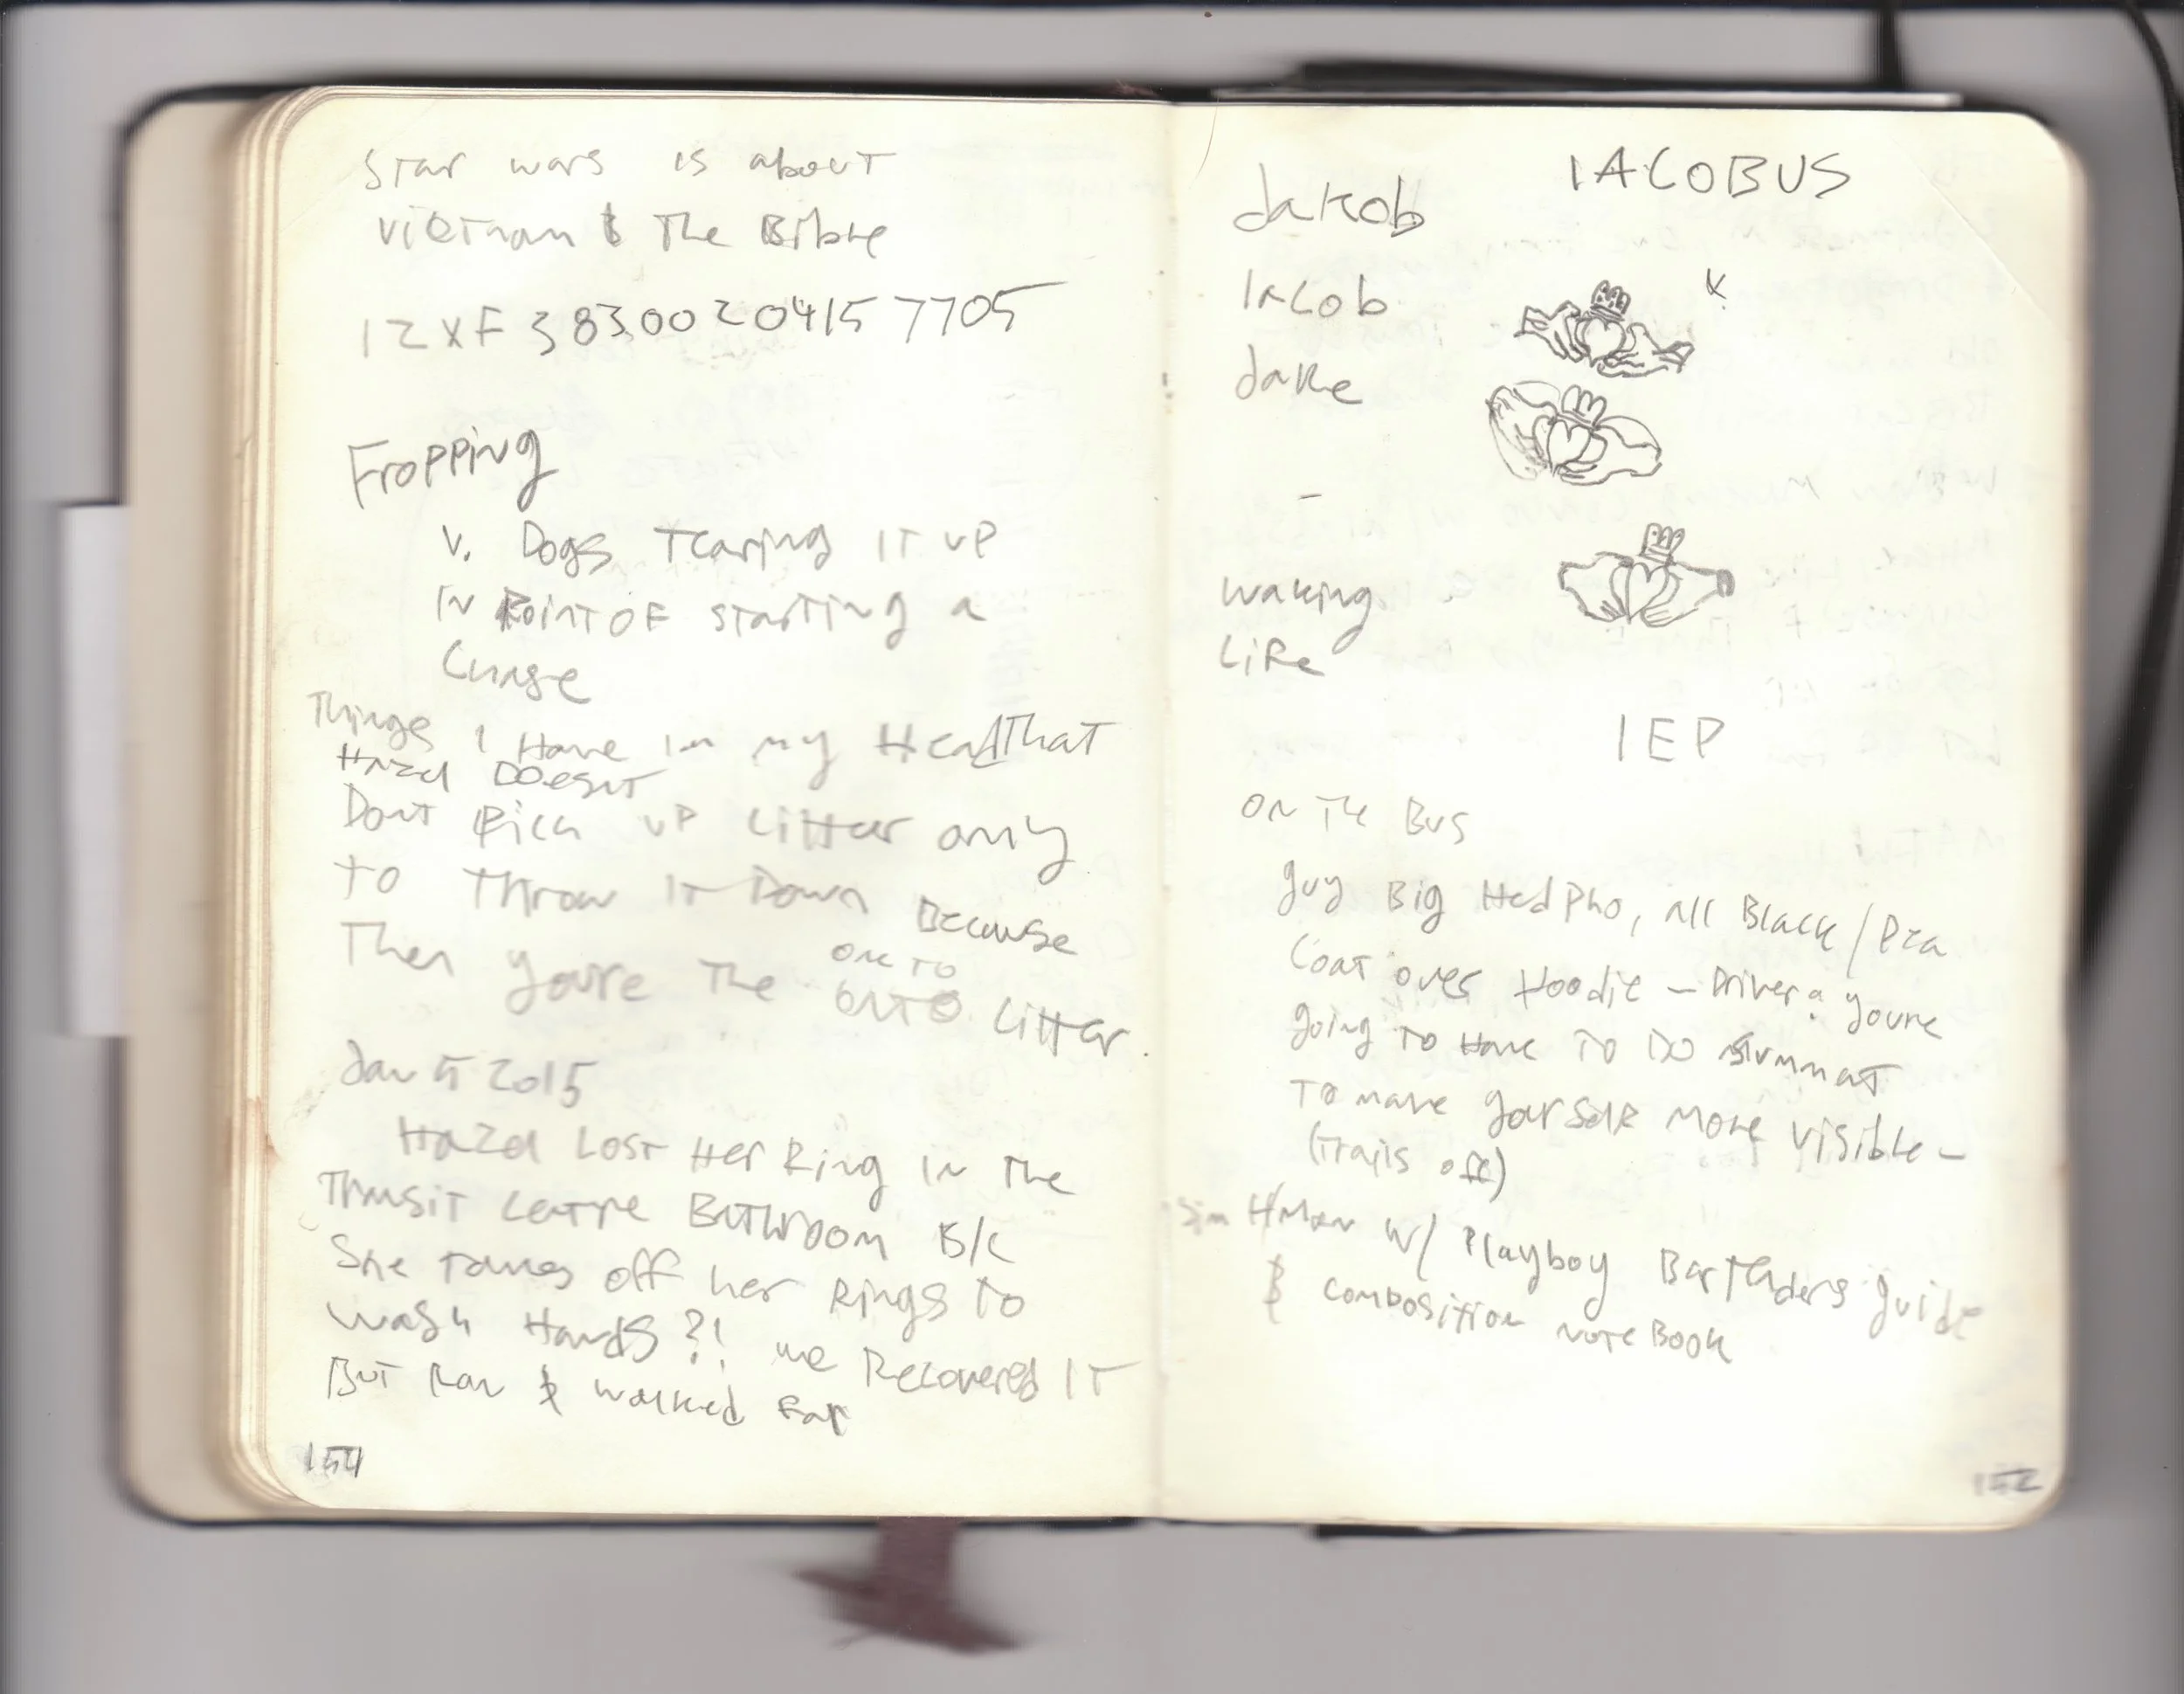 Star wars is about
Vietnam & The Bible
1ZXF38300204157705
Fropping
v. Dogs Tearing it up
in Point of starting a
Curse
Things I Have in my Head That
Hazel Doesnt
Dont Pick up Litter only
to Throw it Down Because
Then youre the one to
onto Litter.
Jan 5 2015
Hazel Lost Her Ring in The
Transit Centre Bathroom B/C
She takes off her Rings to
wash Hands?! we Recovered it
But Ran & walked far
154
IACOBUS
Jakob
Iacob
Jake
waking
Life
IEP
on the Bus
guy Big Hed Pho, all Black / Pea
Coat over Hoodie – Driver: youre
going to Have to Do summat
To make yourself More visible –
(trails off)
w/ Playboy Bartenders guide
& composition note Book